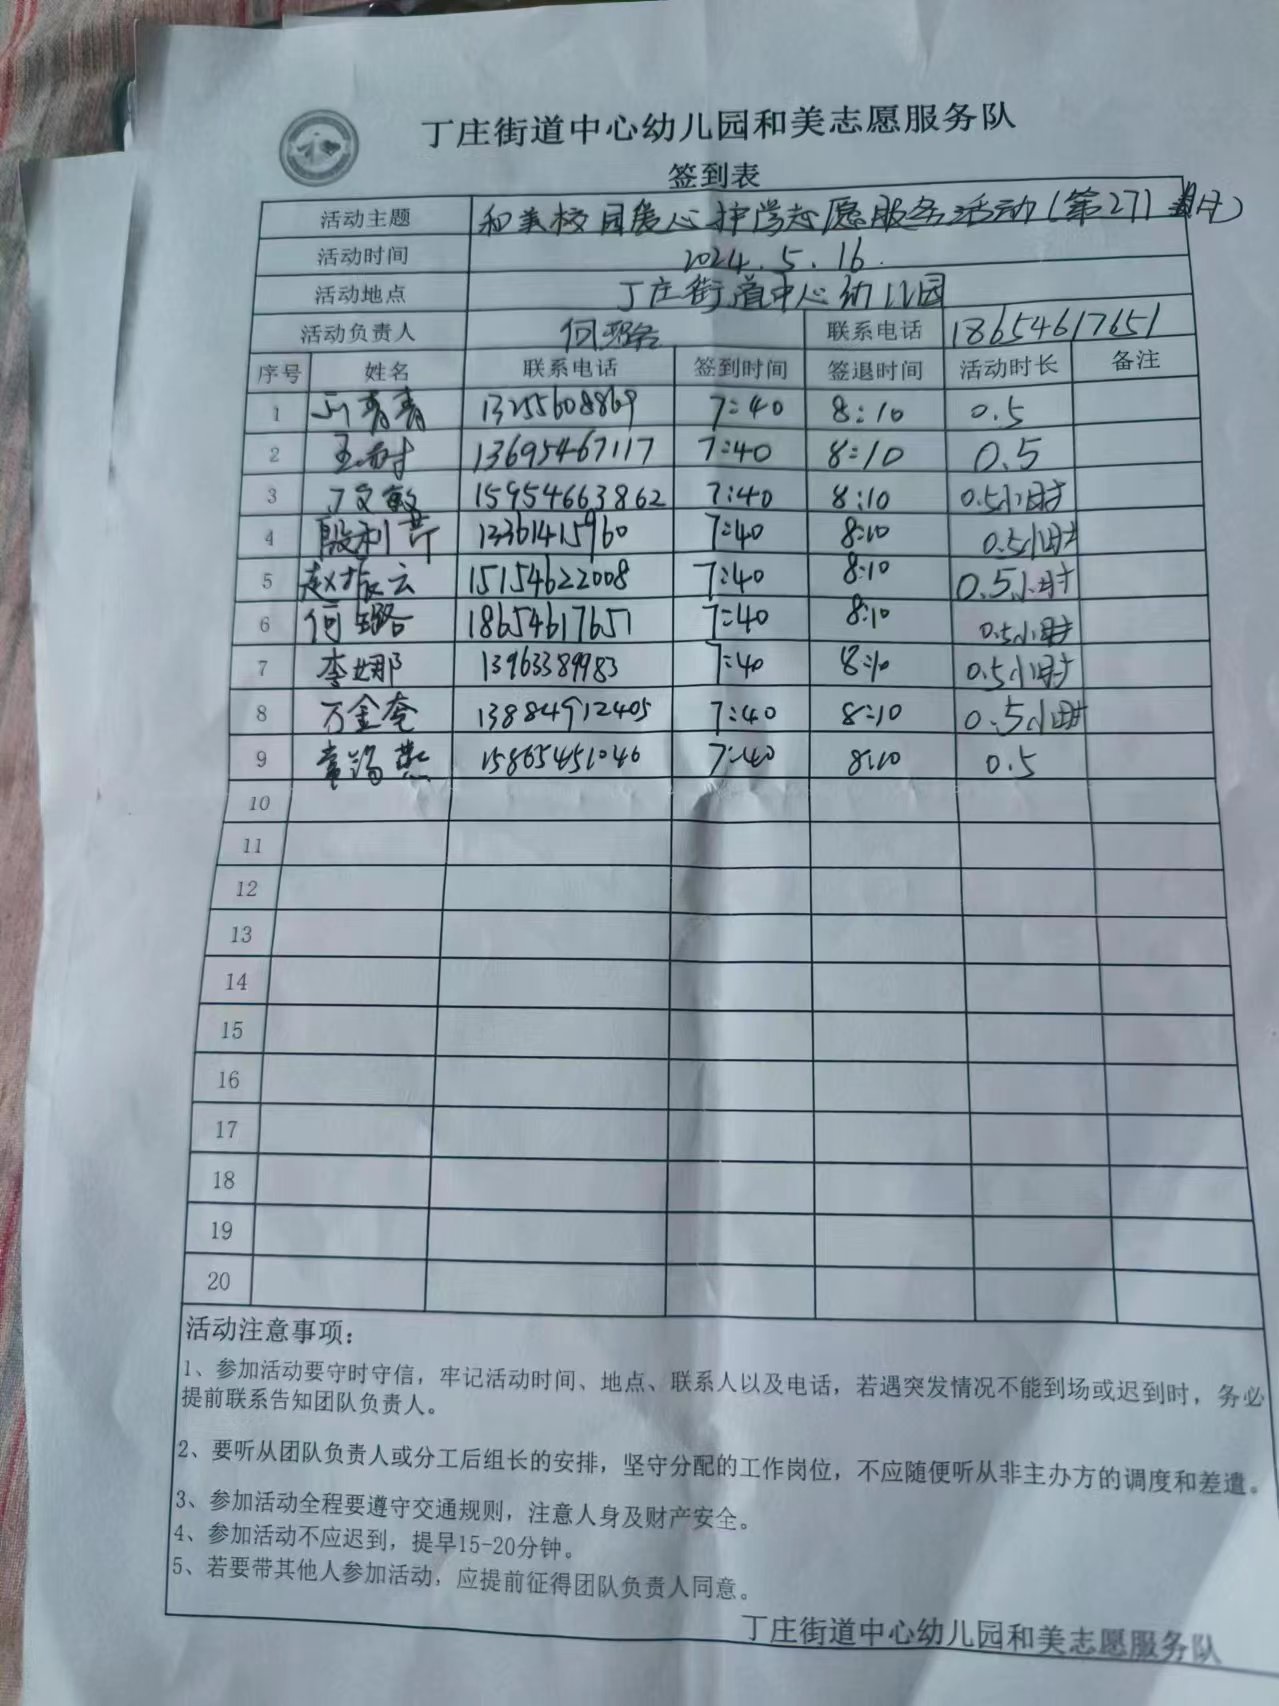 丁庄街道中心幼儿园和美志愿服务队
签到表
活动主题 和美校园爱心护学志愿服务活动(第27)
活动时间 2024.5.16
活动地点 丁庄街道中心幼儿园
活动负责人 何璐 联系电话 18654617651
序号 姓名 联系电话 签到时间 签退时间 活动时长 备注
1 青青 13255608869 7:40 8:10 0.5
2 王 13695467117 7:40 8:10 0.5
3 丁文敏 15954663862 7:40 8:10 0.5小时
4 殷利芹 13361415960 7:40 8:10 0.5小时
5 赵振云 15154622008 7:40 8:10 0.5小时
6 何璐 18654617651 7:40 8:10 0.5小时
7 李娜 13963389983 7:40 8:10 0.5小时
8 万金奎 13884912405 7:40 8:10 0.5小时
9 燕 15865451046 7:40 8:10 0.5
10
11
12
13
14
15
16
17
18
19
20
活动注意事项:
1、参加活动要守时守信，牢记活动时间、地点、联系人以及电话，若遇突发情况不能到场或迟到时，务必
提前联系告知团队负责人。
2、要听从团队负责人或分工后组长的安排，坚守分配的工作岗位，不应随便听从非主办方的调度和差遣。
3、参加活动全程要遵守交通规则，注意人身及财产安全。
4、参加活动不应迟到，提早15-20分钟。
5、若要带其他人参加活动，应提前征得团队负责人同意。
丁庄街道中心幼儿园和美志愿服务队